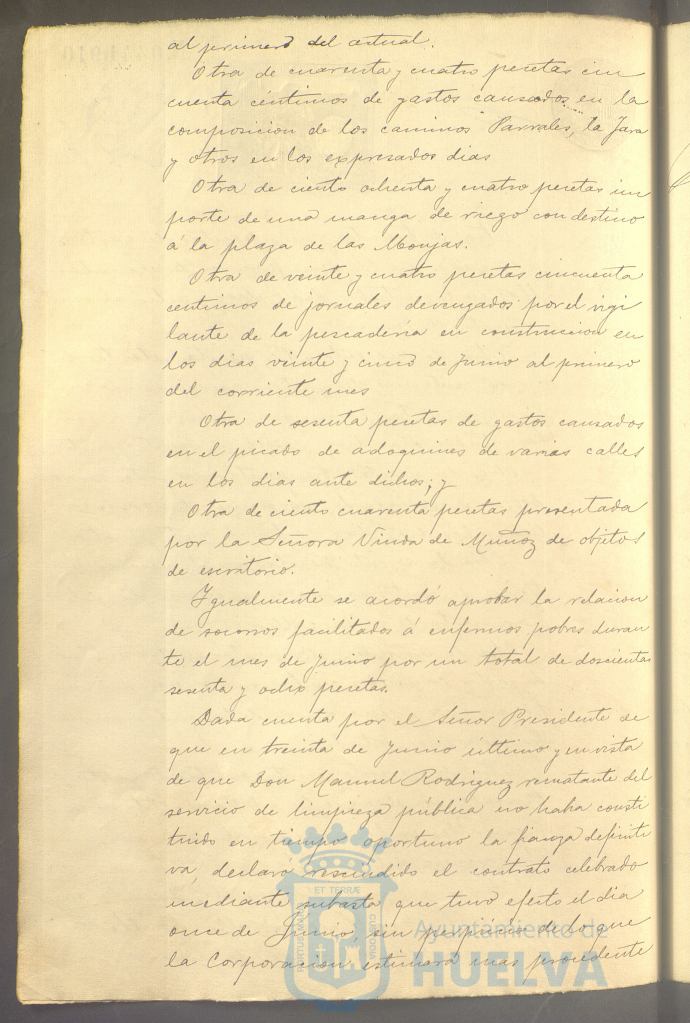 al primero del actual.
Otra de cuarenta y cuatro pesetas cin
cuenta céntimos de gastos causados en la
composicion de los caminos Parrales, la Jara
y otros en los expresados dias
Otra de ciento ochenta y cuatro pesetas im
porte de una manga de riego con destino
á la plaza de las Monjas.
Otra de veinte y cuatro pesetas cincuenta
centimos de jornales devengados por el vigi
lante de la pescadería en construccion en
los dias veinte y cinco de Junio al primero
del corriente mes
Otra de sesenta pesetas de gastos causados
en el picado de adoquines de varias calles
en los dias ante dichos; y
Otra de ciento cuarenta pesetas presentada
por la Señora Viuda de Muñoz de objetos
de escritorio.
Ygualmente se acordó aprobar la relacion
de socorros facilitados á enfermos pobres duran
te el mes de Junio por un total de doscientas
sesenta y ocho pesetas.
Dada cuenta por el Señor Presidente de
que en treinta de Junio último y en vista
de que Don Manuel Rodriguez rematante del
servicio de limpieza pública no habia consti
tuido en tiempo oportuno la fianza definiti
va, declaró rescindido el contrato celebrado
mediante subasta que tuvo efecto el dia
once de Junio, sin perjuicio de lo que
la Corporacion estimará mas procedente
ET TERRÆ
CUSTODIA
Ayuntamiento de
HUELVA